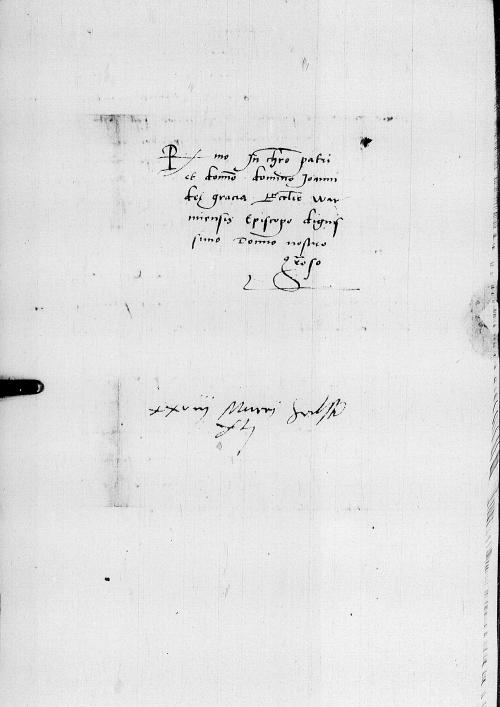 Rmo In chro patri
et domno domino Joanni
dei gracia Ecclie War
miensis Episcopo digniss
simo Domno nostro
groso
xxviij Marci
xlj